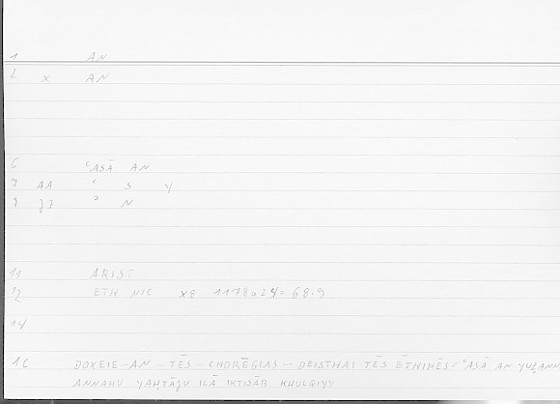 1 AN
2 x AN
6 ʿASĀ AN
7 AA ʿ S Y
8 ʾ N
11 ARIST
12 ETH NIC 1178a24 = 68.9
14
DOXEIE-AN - TĒS - CHORĒGIAS - DEISTHAI TĒS ĒTHIKĒS = ʿASĀ AN
ANNAHU YAḤTĀJU ILĀ IKTISĀB KHULQIYY